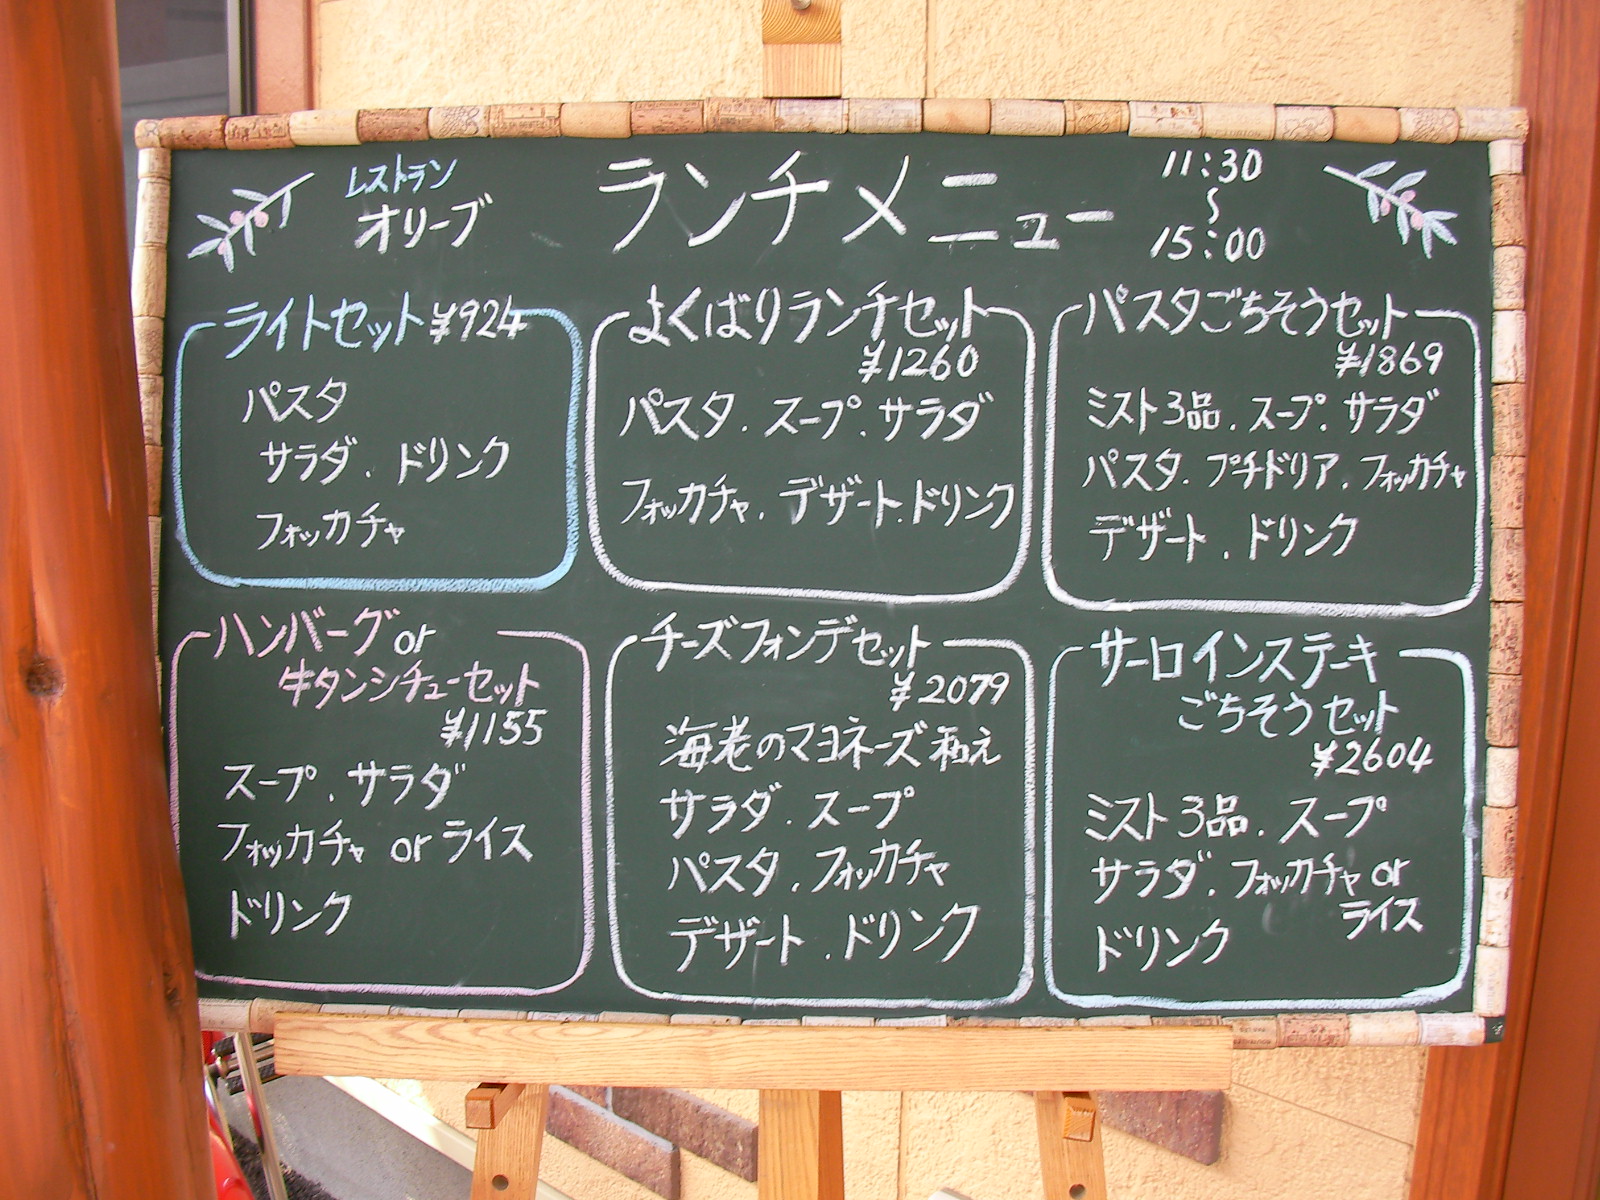 レストラン
オリーブ
ランチメニュー
11:30
〜
15:00
ライトセット ¥924
パスタ
サラダ．ドリンク
フォッカチャ
よくばりランチセット
¥1260
パスタ．スープ．サラダ
フォッカチャ．デザート．ドリンク
パスタごちそうセット
¥1869
ミスト3品．スープ．サラダ
パスタ．プチドリア．フォッカチャ
デザート．ドリンク
ハンバーグor
牛タンシチューセット
¥1155
スープ．サラダ
フォッカチャ or ライス
ドリンク
チーズフォンデセット
¥2079
海老のマヨネーズ和え
サラダ．スープ
パスタ．フォッカチャ
デザート．ドリンク
サーロインステーキ
ごちそうセット
¥2604
ミスト3品．スープ
サラダ．フォッカチャ or
ライス
ドリンク